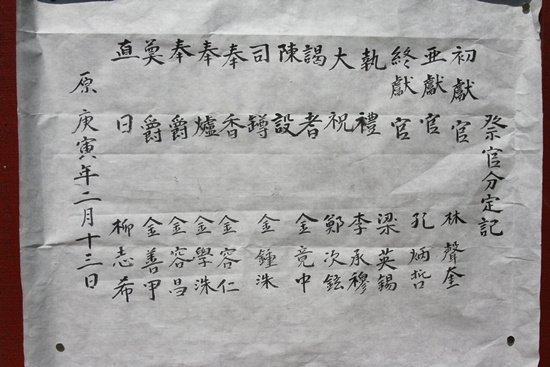 祭官分定記
初獻官 林聲奎
亞獻官 孔炳哲
終獻官 梁英錫
執禮 李承穆
大祝 鄭次鉉
謁者 金竟中
陳設
司罇 金鍾洙
奉香 金容仁
奉爐 金學洙
奉爵 金容昌
奠爵 金善甲
直日 柳志希
原 庚寅年二月十三日